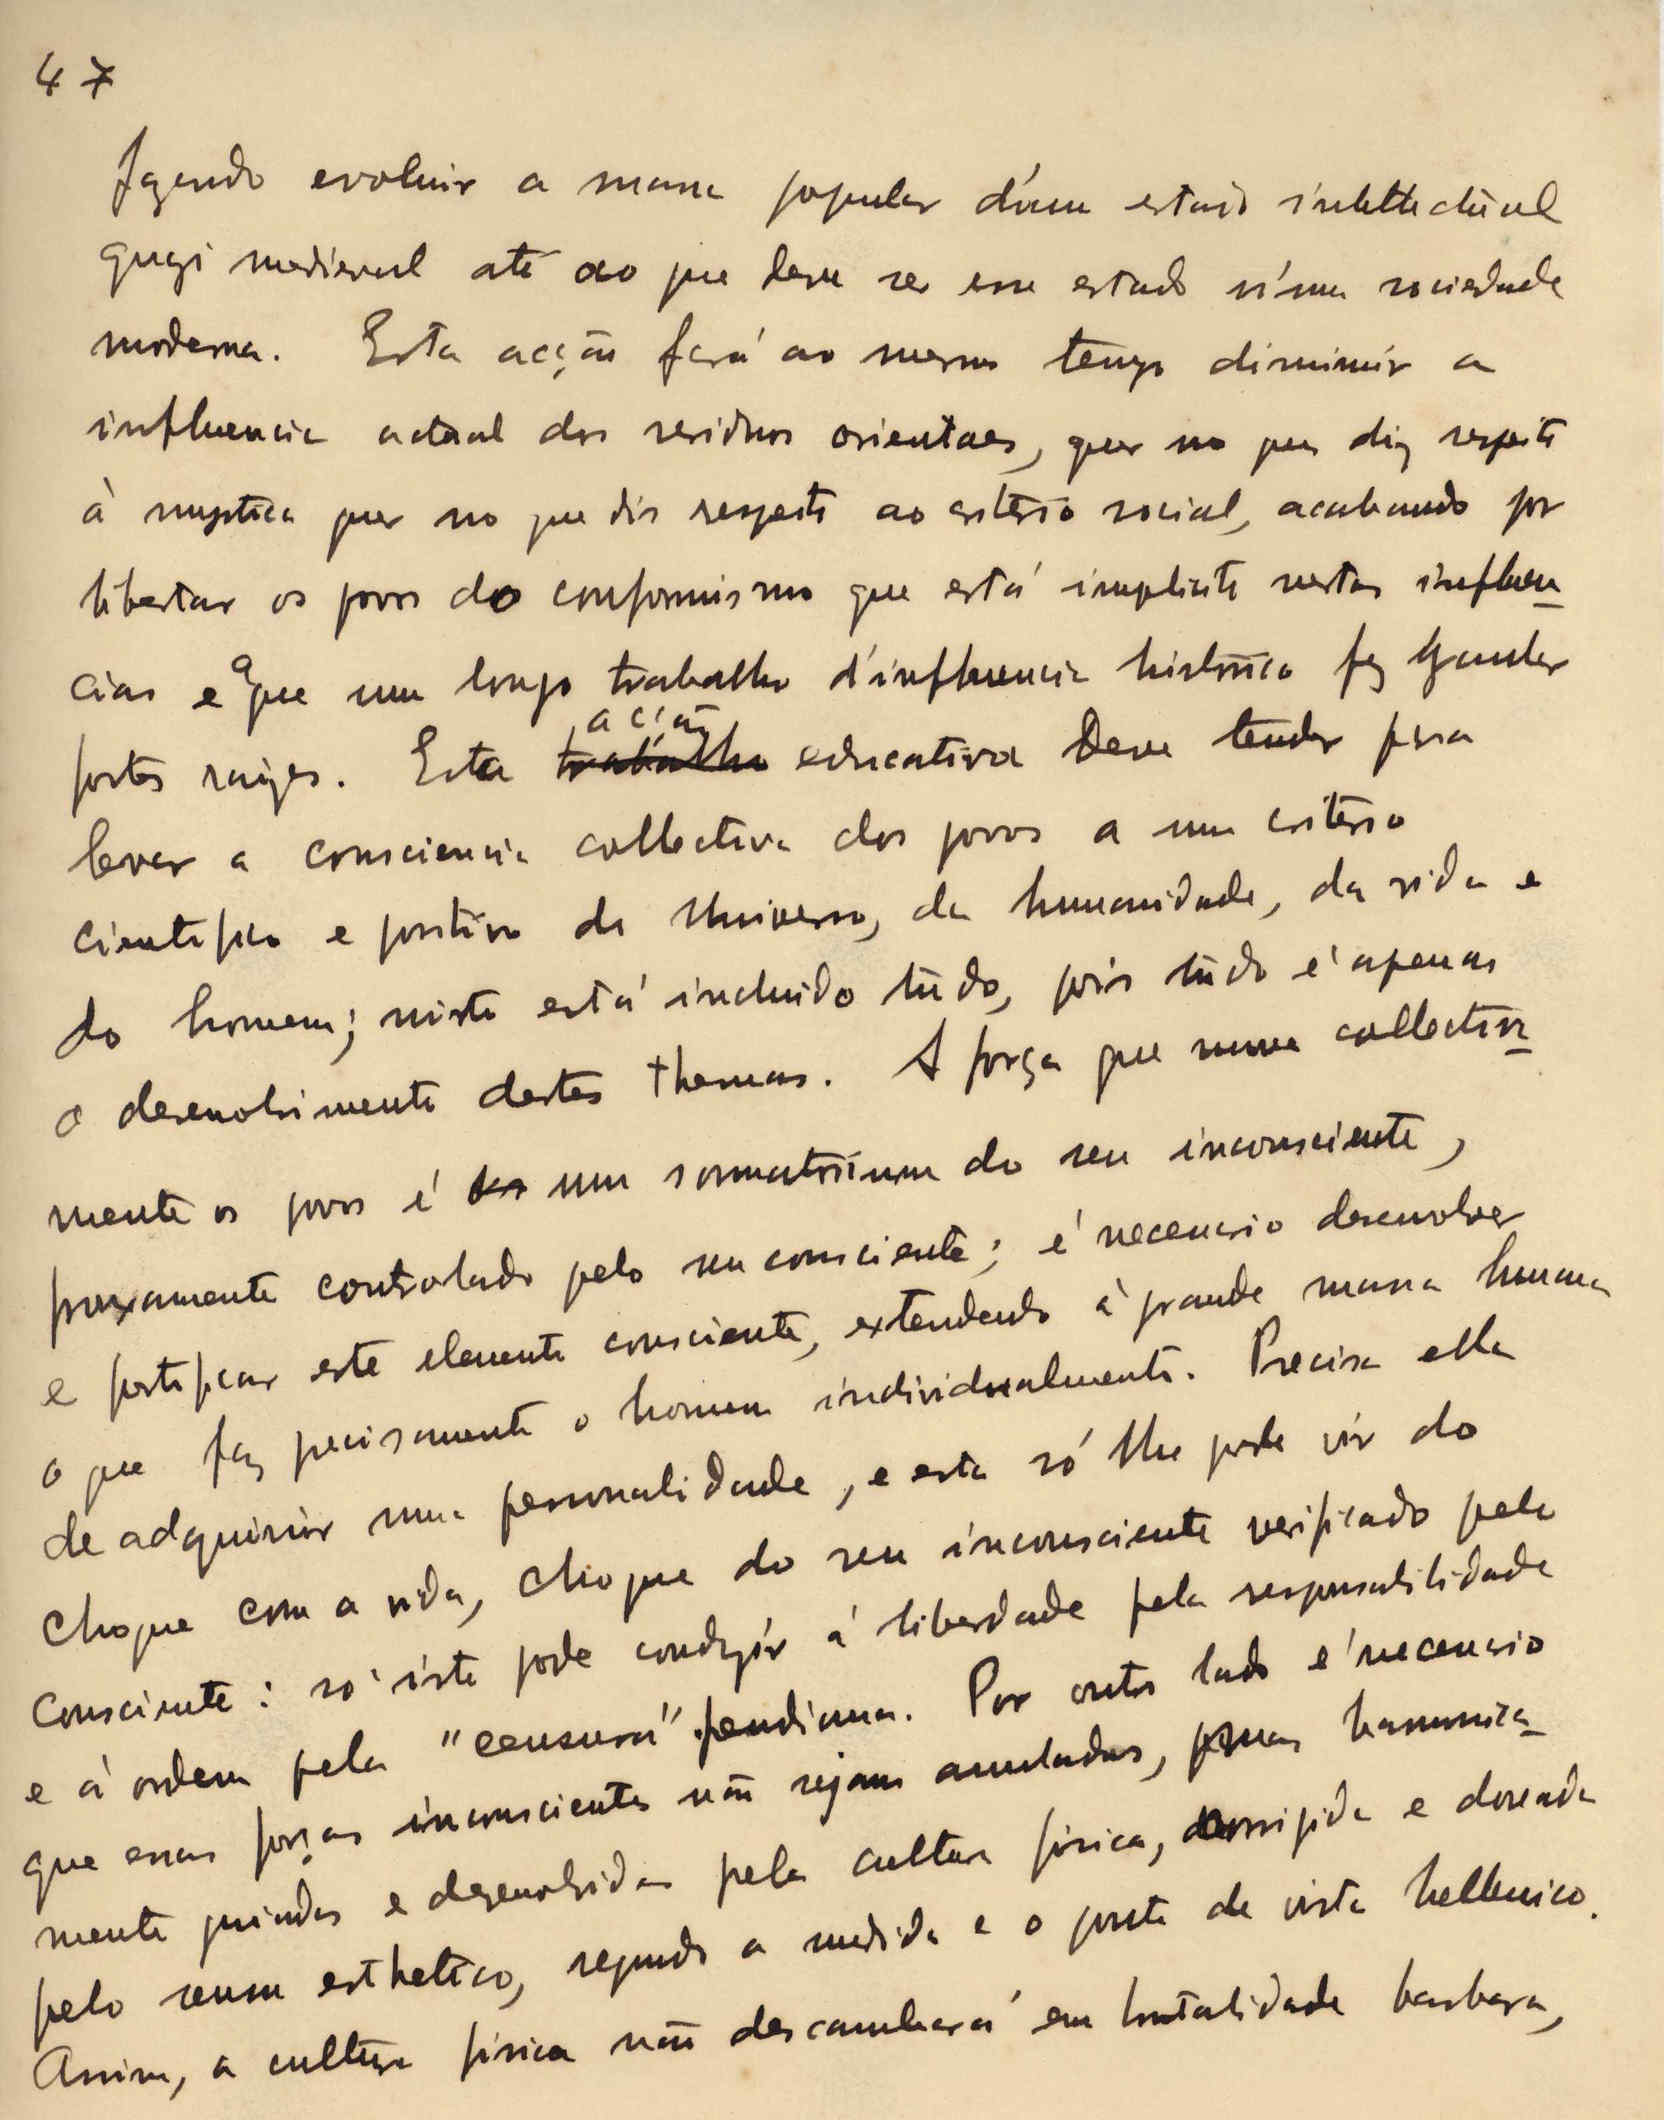 47
fazendo evoluir a massa popular d'um estado intellectual
quazi medieval até ao que deve ser esse estado n'uma sociedade
moderna. Esta acção fará ao mesmo tempo diminuir a
influencia actual dos residuos orientaes, quer no que diz respeito
à mystica quer no que dis respeito ao criterio social, acabando por
libertar os povos do conformismo que está implicito nestas influen
cias e a que um longo trabalho d'influencia historica fez ganhar
fortes raizes. Esta acção trabalho educativa deve tender para
levar a consciencia collectiva dos povos a um criterio
cientifico e positivo do Universo, da humanidade, da vida e
do homem; nisto está incluido tudo, pois tudo é apenas
o desenvolvimento destes themas. A força que move collectiva
mente os povos é um somatorium do seu inconsciente,
frouxamente controlado pelo seu consciente; é necessario desenvolver
e fortificar este elemento consciente, extendendo à grande massa humana
o que faz precisamente o homem individualmente. Precisa ella
de adquirir uma personalidade, e esta só lhe pode vir do
choque com a vida, choque do seu inconsciente verificado pelo
consciente: só isto pode conduzir à liberdade pela responsabilidade
e à ordem pela "censura" freudiana. Por outro lado é necessario
que essas forças inconscientes não sejam anuladas, mas harmonica-
mente guiadas e dezenvolvidas pela cultura fisica, corrigida e doseada
pelo senso esthetico, segundo a medida e o ponto de vista hellenico.
Assim, a cultura fisica não descambará em brutalidade barbara,